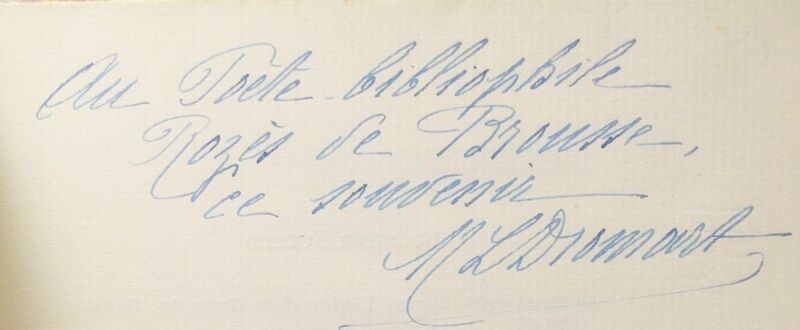 Au Poète bibliophile
Rozès de Brousse,
ce souvenir
M L Dromart